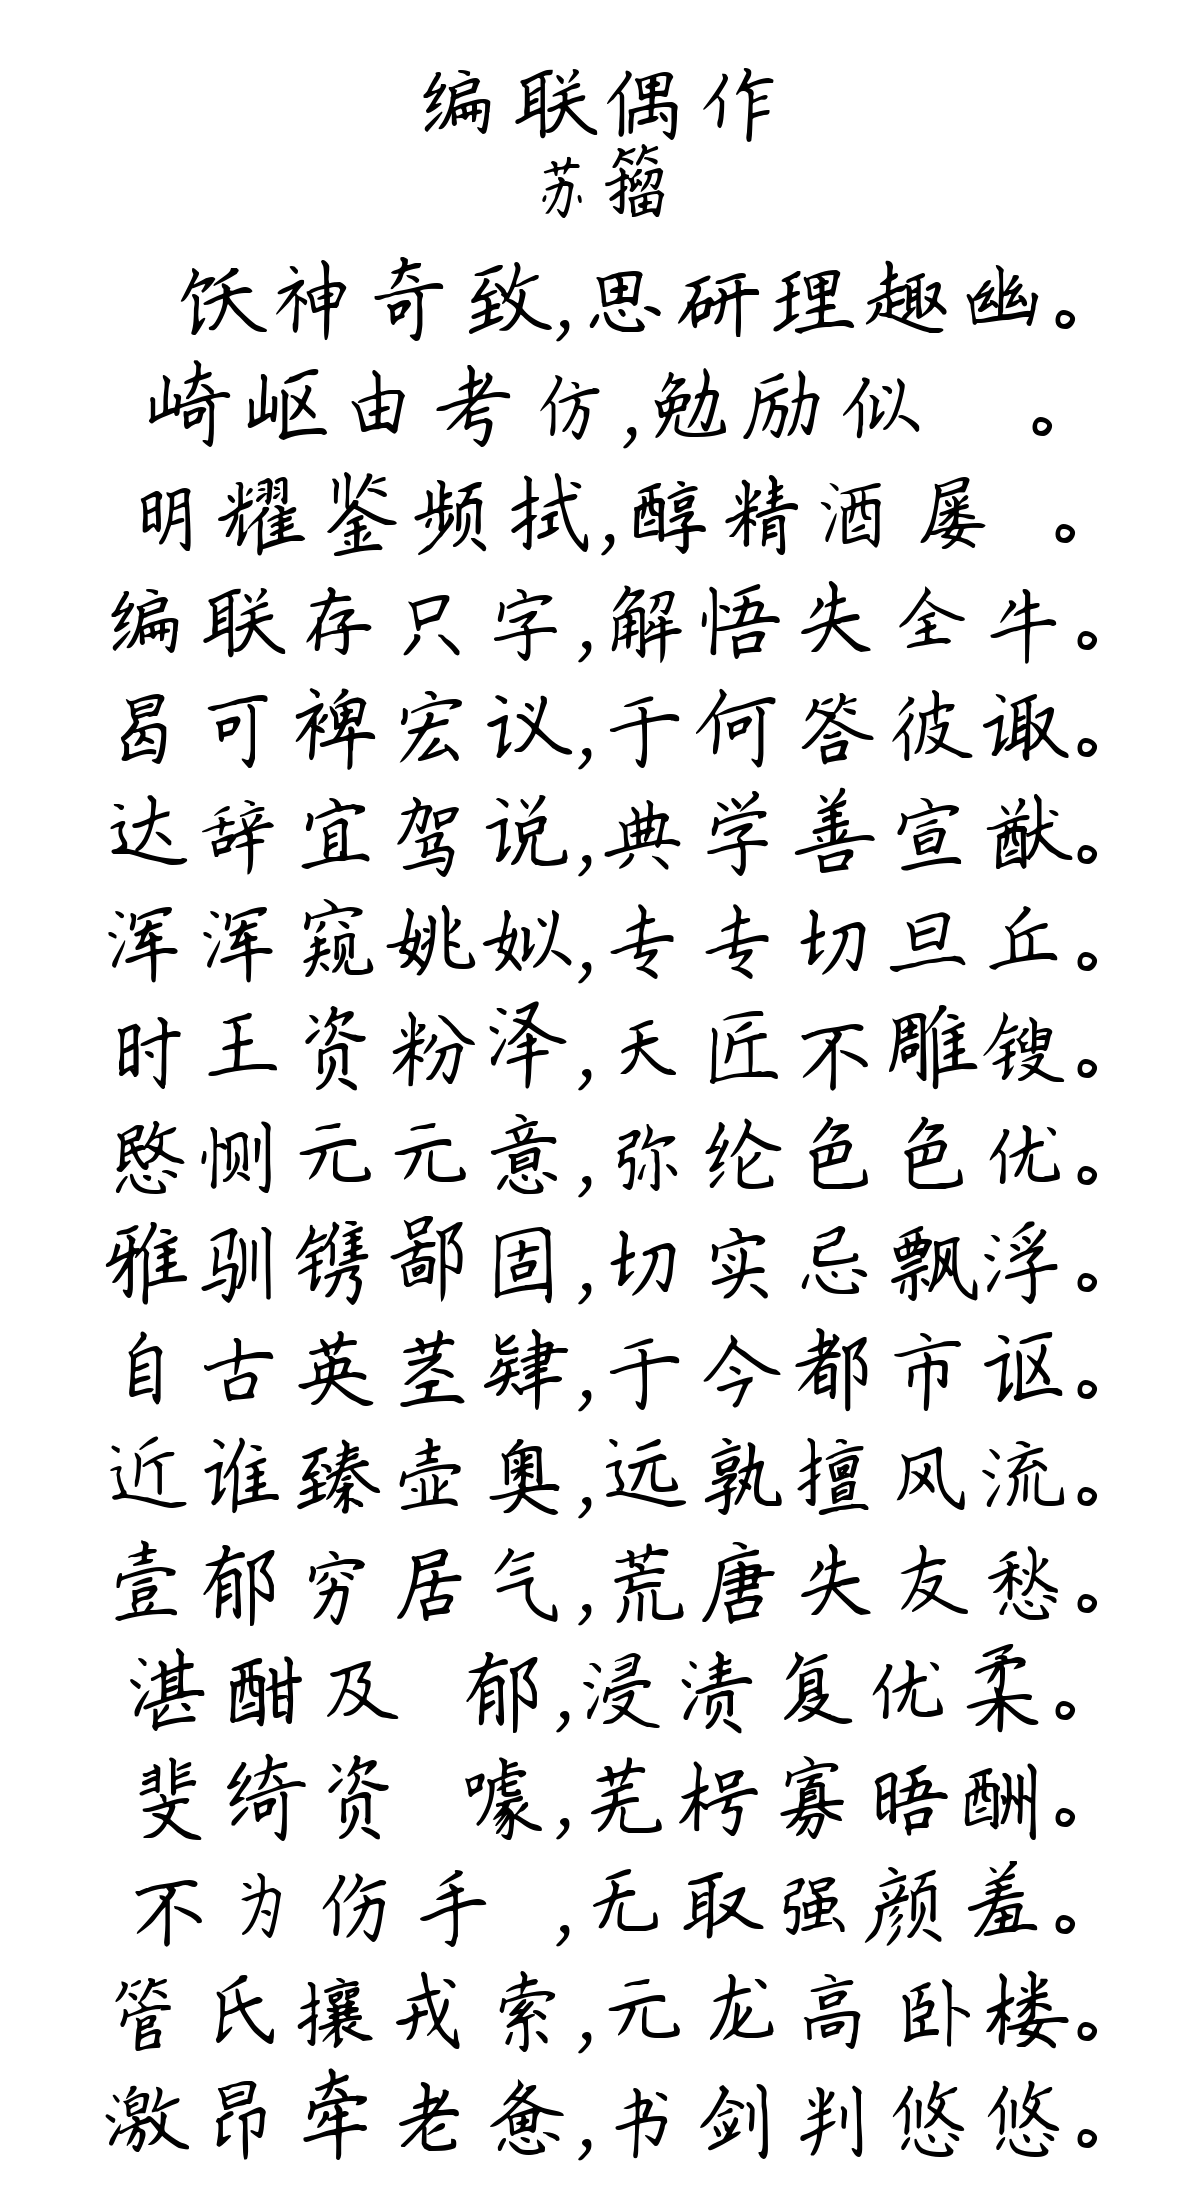 编联偶作
苏籀
饫神奇致,思研理趣幽。
崎岖由考仿,勉励似 。
明耀鉴频拭,醇精酒屡 。
编联存只字,解悟失全牛。
曷可裨宏议,于何答彼诹。
达辞宜驾说,典学善宣猷。
浑浑窥姚姒,专专切旦丘。
时王资粉泽,天匠不雕锼。
愍恻元元意,弥纶色色优。
雅驯镌鄙固,切实忌飘浮。
自古英茎肄,于今都市讴。
近谁臻壶奥,远孰擅风流。
壹郁穷居气,荒唐失友愁。
湛酣及 郁,浸渍复优柔。
斐绮资 噱,芜枵寡晤酬。
不为伤手 ,无取强颜羞。
管氏攘戎索,元龙高卧楼。
激昂牵老惫,书剑判悠悠。